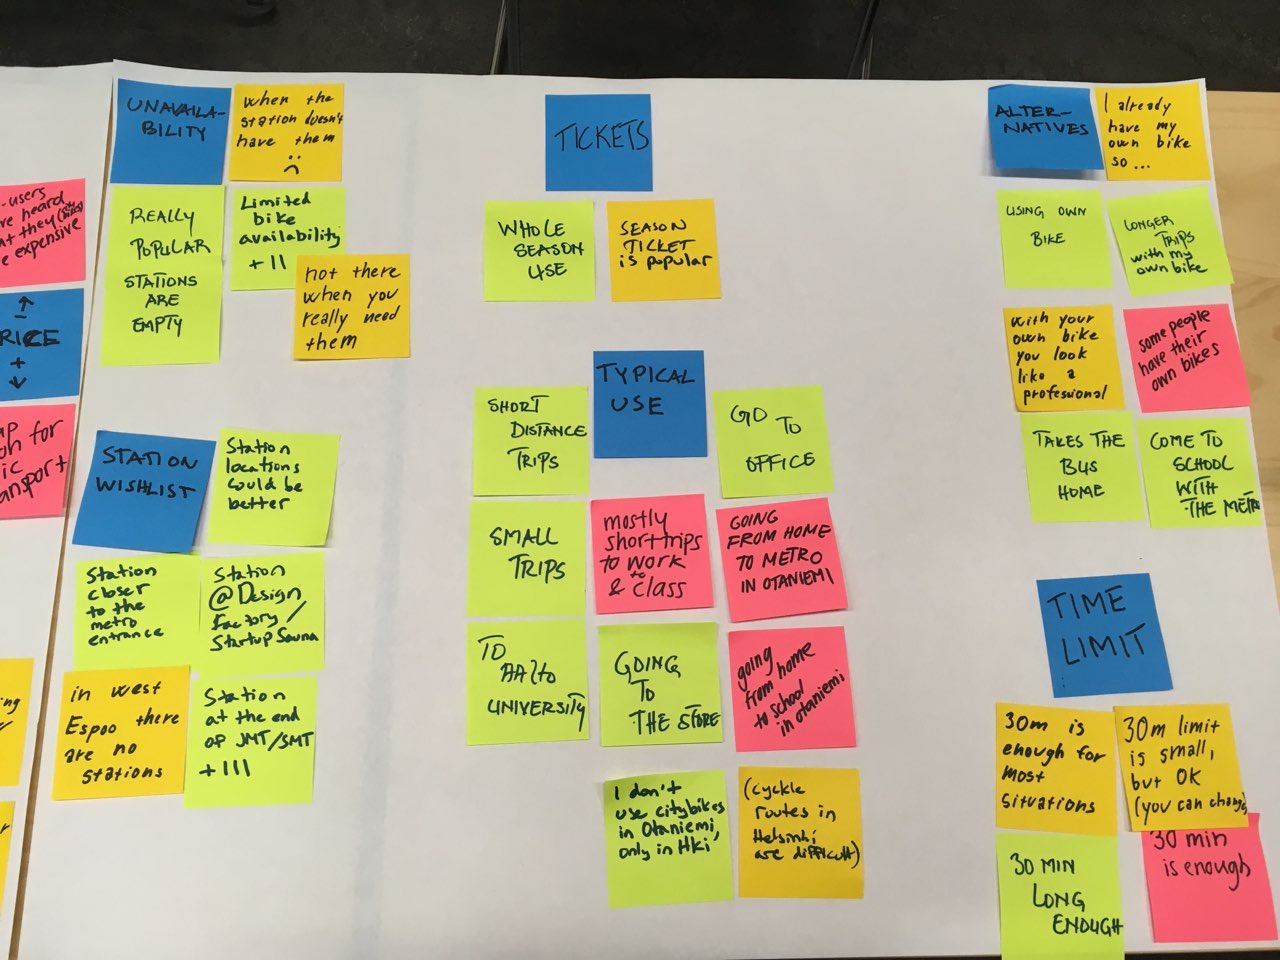 -users
ve heard
at they
e expensive
RICE
+
for
ic
ansport
ing
UNAVAILA-
BILITY
when the
station doesn't
have them
:(
REALLY
POPULAR
STATIONS
ARE
EMPTY
Limited
bike
availability
+ II
not there
when you
really need
them
STATION
WISHLIST
Station
locations
could be
better
Station
closer
to the
metro
entrance
Station
@Design
Factory/
Startup Sauna
in west
Espoo there
are no
stations
Station
at the end
of JMT/SMT
+ III
TICKETS
WHOLE
SEASON
USE
SEASON
TICKET
is popular
TYPICAL
USE
SHORT
DISTANCE
TRIPS
GO TO
OFFICE
SMALL
TRIPS
mostly
short trips
to work
& class
GOING
FROM HOME
TO METRO
IN OTANIEMI
TO
AALTO
UNIVERSITY
GOING
TO
THE STORE
going
from home
to school
in otaniemi
I don't
use citybikes
in Otaniemi,
only in Hki
(cyckle
routes in
Helsinki
are difficult)
ALTER-
NATIVES
I already
have my
own bike
so...
USING OWN
BIKE
LONGER
TRIPS
with my
own bike
with your
own bike
you look
like a
professional
some people
have their
own bikes
TAKES THE
BUS
HOME
COME TO
SCHOOL
WITH
THE METRO
TIME
LIMIT
:
30m is
enough for
most
situations
30m limit
is small,
but OK
(you can change)
30 MIN
LONG
ENOUGH
30 min
is enough